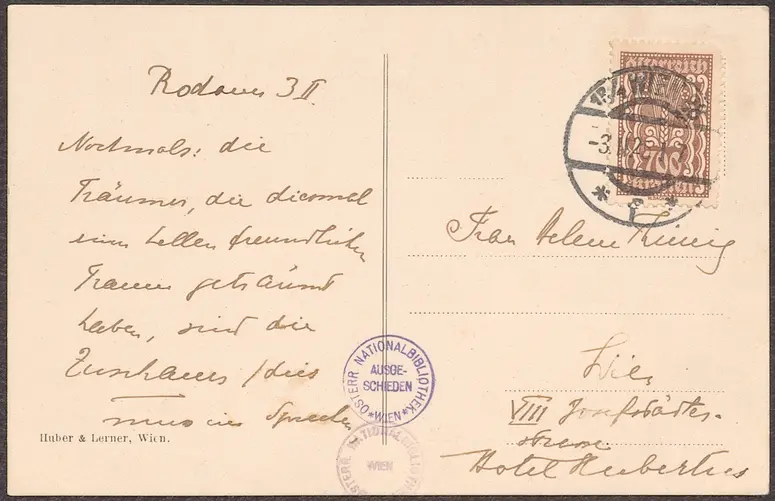 Rodaun 3 II.
Nochmals: die
Träumer, die diesmal
einen hellen freundlichen
Traum geträumt
haben, sind die
Zuschauer / dies
muss im Sprechen
Huber & Lerner, Wien.
ÖSTERR. NATIONALBIBLIOTHEK
AUSGE-
SCHIEDEN
*WIEN*
ÖSTERR. NATIONALBIBLIOTHEK
WIEN
WIEN
-3.II.2
Frau Helene Thimig
Wien
VIII Josefstädter-
strasse
Hotel Hubertus